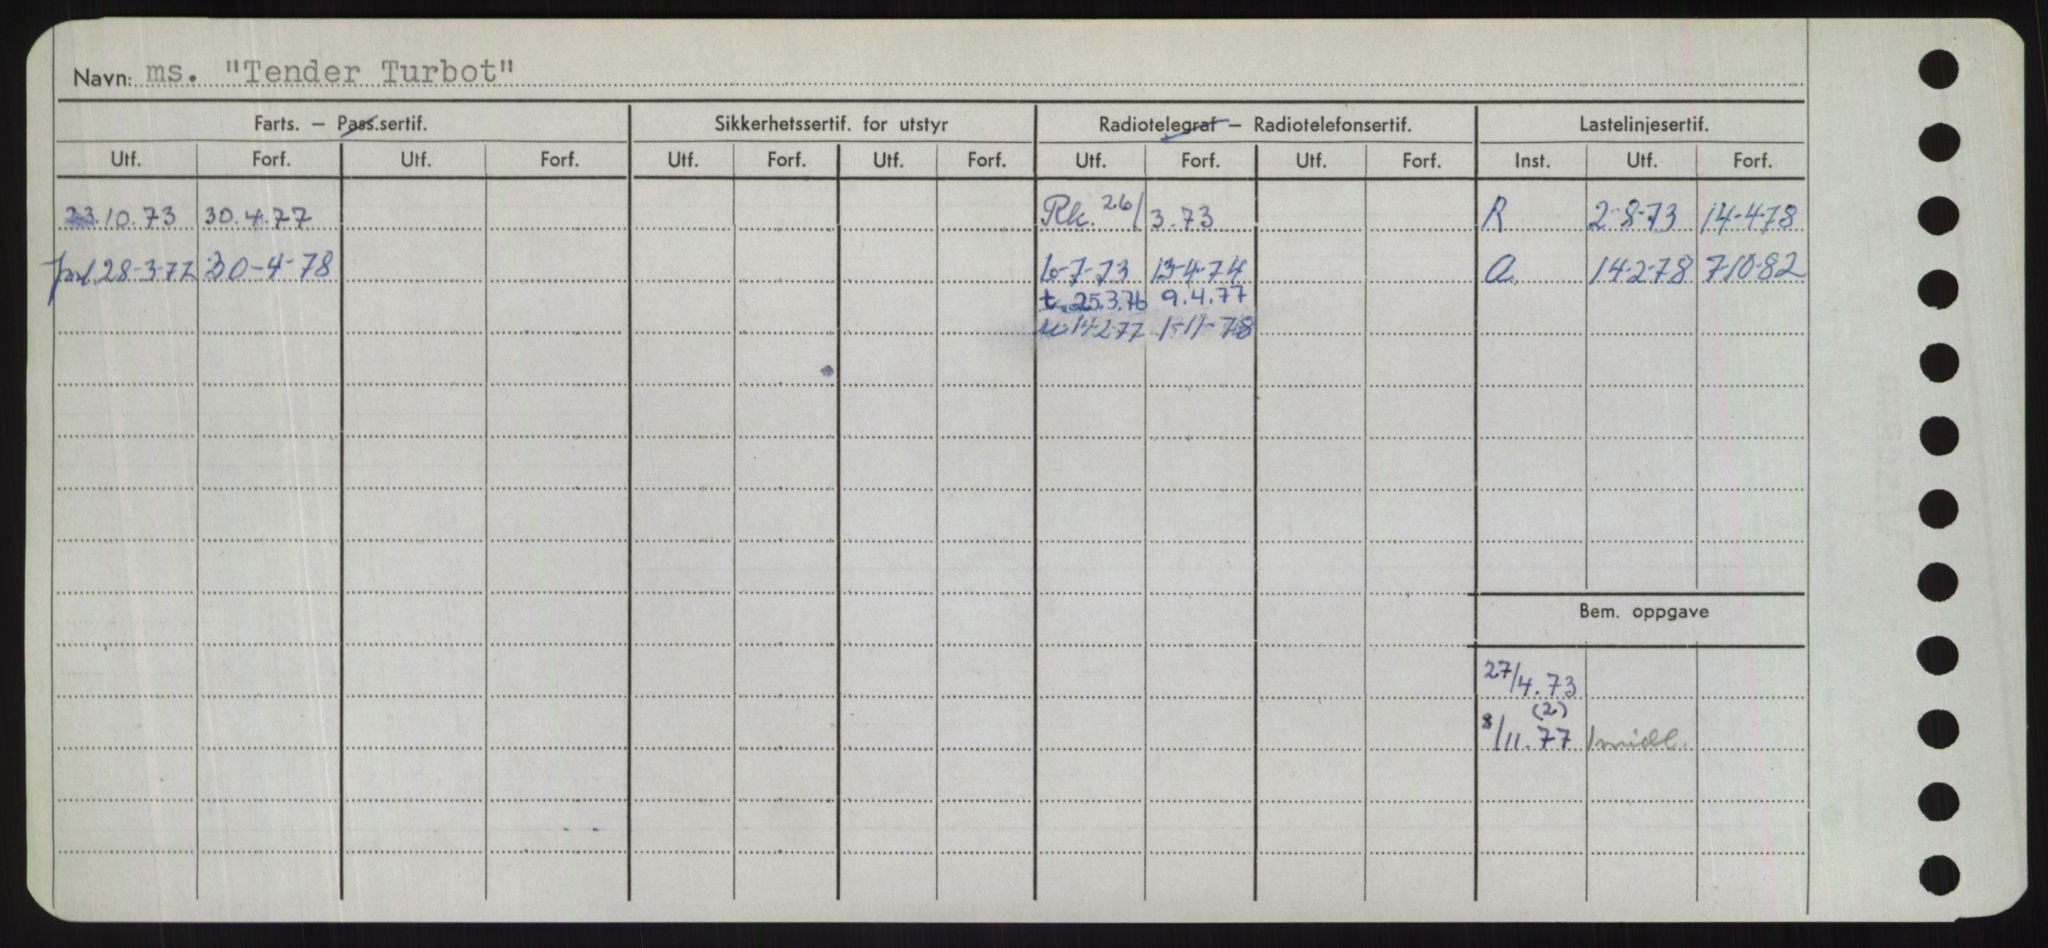 Navn: ms. "Tender Turbot"
Farts. — Pass.sertif. Sikkerhetssertif. for utstyr Radiotelegraf — Radiotelefonsertif. Lastelinjesertif.
Utf. Forf. Utf. Forf. Utf. Forf. Utf. Forf. Utf. Forf. Utf. Forf. Inst. Utf. Forf.
23.10.73 30.4.77 Rk. 26/3.73 R 2-8-73 14-4-78
28-3-77 30-4-78 6-7-73 13-4-74 A. 14-2-78 7-10-82
t. 25.3.76 9.4.77
14-2-77 1-11-78
Bem. oppgave
27/4.73
(2)
8/11.77